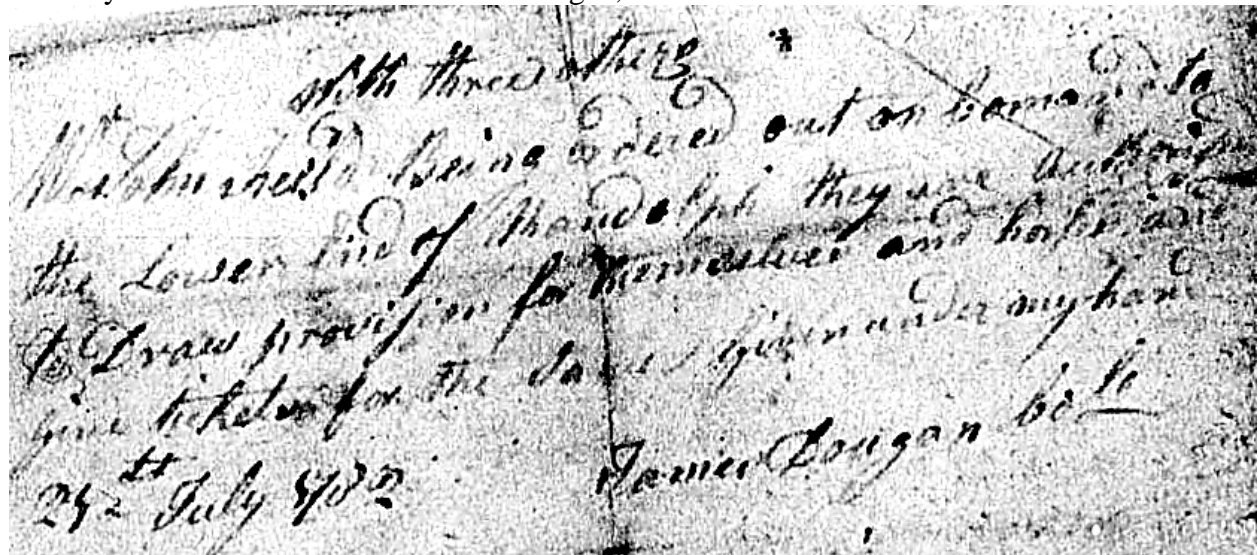 with three others *
Mr John Sheild Being ordered out on Comand to
the Lower End of Randolph they are Authorised
to Draw provision for themselves and horses and
give tickets for the Same Given under my hand
July 1782 James Dougan Col